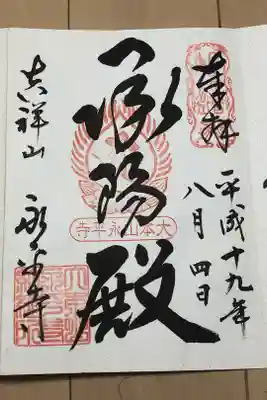 奉拝
平成十九年
八月四日
承陽殿
大本山永平寺
吉祥山
永平寺